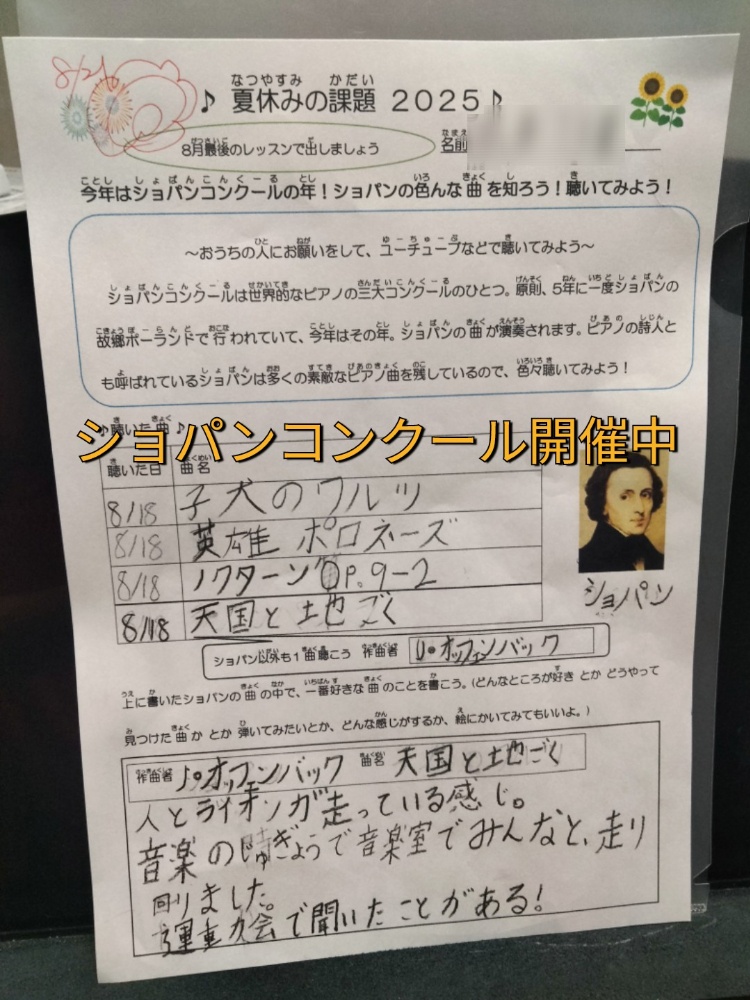 8/21
♪ 夏休みの課題 2025 ♪
8月最後のレッスンで出しましょう
名前
今年はショパンコンクールの年！ショパンの色んな曲を知ろう！聴いてみよう！
～おうちの人にお願いをして、ユーチューブなどで聴いてみよう～
ショパンコンクールは世界的なピアノの三大コンクールのひとつ。原則、5年に一度ショパンの
故郷ポーランドで行われていて、今年はその年。ショパンの曲が演奏されます。ピアノの詩人と
も呼ばれているショパンは多くの素敵なピアノ曲を残しているので、色々聴いてみよう！
♪聴いた曲♪
ショパンコンクール開催中
聴いた日 曲名
8/18 子犬のワルツ
8/18 英雄ポロネーズ
8/18 ノクターンOP.9-2
8/18 天国と地ごく
ショパン
ショパン以外も1曲聴こう 作曲者 J・オッフェンバック
上に書いたショパンの曲の中で、一番好きな曲のことを書こう。（どんなところが好きとかどうやって
見つけた曲かとか弾いてみたいとか、どんな感じがするか、絵にかいてみてもいいよ。）
作曲者 J・オッフェンバック 曲名 天国と地ごく
人とライオンが走っている感じ。
音楽のじゅぎょうで音楽室でみんなと、走り
回りました。
運動会で聞いたことがある！